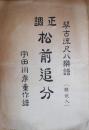 琴古流尺八樂譜
(譜説入)
正調
松前追分
宇田川彦重作譜